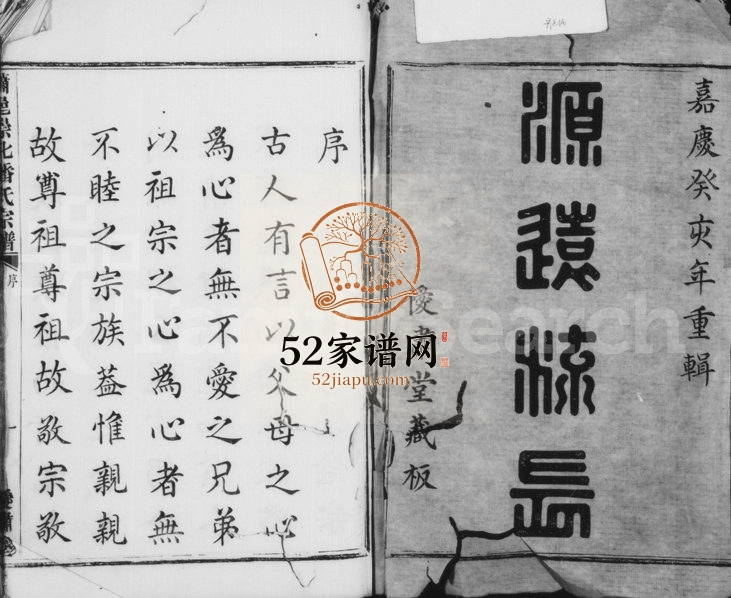 嘉慶癸亥年重輯
源遠流長
堂藏板
序
古人有言以父母之心
爲心者無不愛之兄弟
以祖宗之心爲心者無
不睦之宗族葢惟親親
故尊祖尊祖故敬宗敬
潘氏宗譜
序
一
52家谱网
52jiapu.com